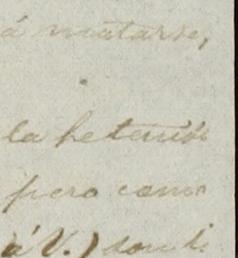 á matarse,
la he tenido
pero como
á V.)